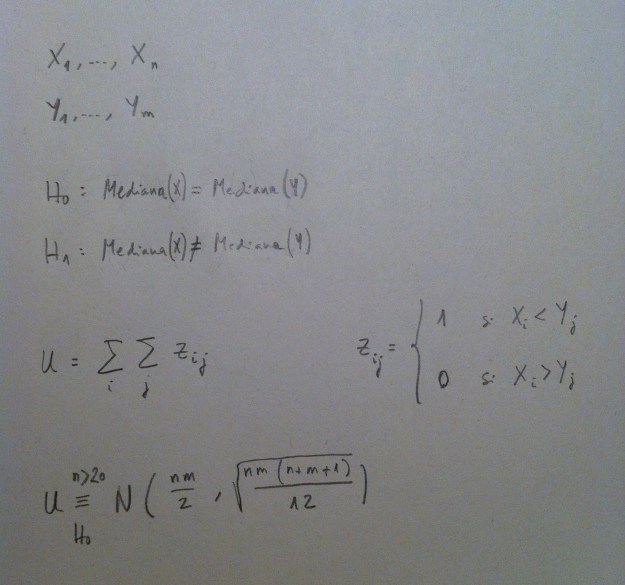 X₁, ..., Xₙ
Y₁, ..., Yₘ
H₀ : Mediana(X) = Mediana(Y)
H₁ : Mediana(X) ≠ Mediana(Y)
U = ∑ᵢ ∑ⱼ zᵢⱼ    zᵢⱼ = { 1 si Xᵢ < Yⱼ
0 si Xᵢ > Yⱼ
n>20
U ≡ N ( nm/2 , √(nm (n+m+1)/12) )
H₀